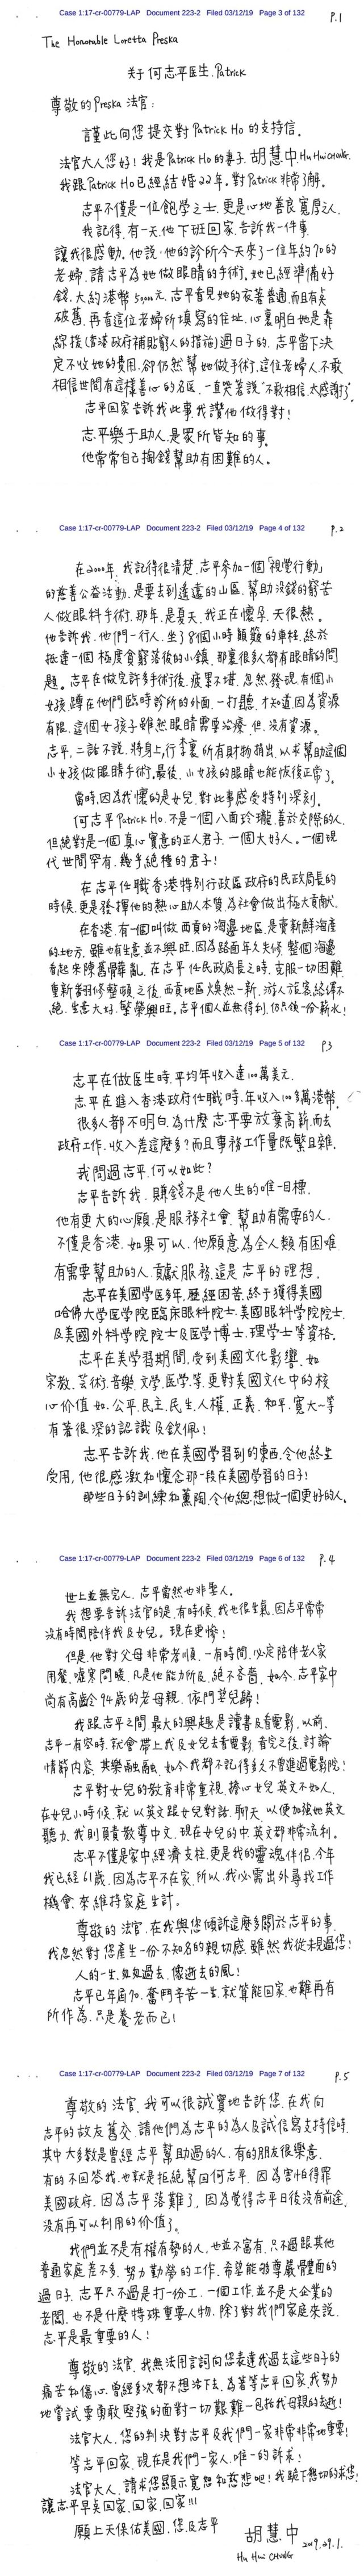 Case 1:17-cr-00779-LAP Document 223-2 Filed 03/12/19 Page 3 of 132
P.1
The Honorable Loretta Preska
关于何志平医生, Patrick
尊敬的Preska 法官:
謹此向您提交對Patrick Ho的支持信。
法官大人您好! 我是Patrick Ho的妻子, 胡慧中, Hu Hui CHUNG.
我跟Patrick Ho已經結婚22年, 對Patrick 非常了解。
志平不僅是一位飽學之士, 更是心地善良寬厚之人。
我記得, 有一天, 他下班回家, 告訴我一件事,
讓我很感動。他說, 他的診所今天來了一位年約70的
老婦, 請志平為她做眼睛的手術。她已經準備好
錢, 大約港幣5,000元, 志平看見她的衣著普通, 而且有點
破舊, 再看這位老婦所填寫的住址, 心裏明白她是靠
綜援(香港政府補貼窮人的措施)過日子的, 志平當下決
定不收她的費用, 卻仍然幫她做手術, 這位老婦人, 不敢
相信世間有這樣善心的名医, 一直哭着說"不敢相信, 太感謝了"。
志平回家告訴我此事, 我讚他做得對!
志平樂于助人, 是眾所皆知的事。
他常常自己掏錢幫助有困難的人。
Case 1:17-cr-00779-LAP Document 223-2 Filed 03/12/19 Page 4 of 132
P.2
在2000年, 我記得很清楚, 志平參加一個「視覺行動」
的慈善公益活動, 是要去到遙遠的山區, 幫助沒錢的窮苦
人做眼科手術, 那年, 是夏天, 我正在懷孕, 天很熱。
他告訴我, 他們一行人, 坐了8個小時顛簸的車程, 終於
抵達一個極度貧窮落後的小鎮, 那裏很多人都有眼睛的問
題。志平在做完許多手術後, 疲累不堪, 忽然發現, 有個小
女孩, 蹲在他們臨時診所的外面, 一打聽, 才知道, 因為資源
有限, 這個女孩子雖然眼睛需要治療, 但, 沒有資源。
志平, 二話不說, 將身上, 行李裏所有財物捐出, 以求幫助這個
小女孩做眼睛手術, 最後, 小女孩的眼睛也能恢復正常了。
當時, 因為我懷的是女兒, 對此事感受特別深刻。
何志平 Patrick Ho, 不是一個八面玲瓏, 善於交際的人,
但絕對是一個真心實意的正人君子, 一個大好人, 一個現
代世間罕有, 幾乎絕種的君子!
在志平任職香港特別行政區政府的民政局長的
時候, 更是發揮他的熱心助人本質, 為社會做出極大貢獻。
在香港, 有一個叫做西貢的海邊地區, 是賣新鮮海產
的地方, 雖也有生意, 並不興旺, 因為路面年久失修, 整個海邊
看起來陳舊髒亂, 在志平任民政局長之時, 克服一切困難
重新翻修整頓, 之後, 西貢地區煥然一新, 游人旅客絡繹不
絕, 生意大好, 繁榮興旺。志平個人並無得利, 仍只領一份薪水!
Case 1:17-cr-00779-LAP Document 223-2 Filed 03/12/19 Page 5 of 132
P.3
志平在做医生時, 平均年收入達100萬美元,
志平在進入香港政府任職時, 年收入100多萬港幣。
很多人都不明白, 為什麼志平要放棄高薪, 而去
政府工作, 收入差這麼多? 而且事務工作量既繁且雜。
我問過志平, 何以如此?
志平告訴我, 賺錢不是他人生的唯一目標,
他有更大的心願, 是服務社會, 幫助有需要的人,
不僅是香港, 如果可以, 他願意為全人類有困难
有需要幫助的人, 貢獻服務, 這是志平的理想。
志平在美國學医多年, 歷經困苦, 終于獲得美國
哈佛大学医学院臨床眼科院士, 美國眼科学院院士,
及美國外科學院院士及医学博士, 理学士等資格。
志平在美学習期間, 受到美國文化影響, 如
宗教, 芸術, 音樂, 文学, 医学等, 更對美國文化中的核
心价值, 如, 公平, 民主, 民生, 人權, 正義, 和平, 寬大~等
有著很深的認識及欽佩!
志平告訴我, 他在美國學習到的東西, 令他終生
受用, 他很感激和懷念那一段在美國學習的日子!
那些日子的訓練和薰陶, 令他總想做一個更好的人。
Case 1:17-cr-00779-LAP Document 223-2 Filed 03/12/19 Page 6 of 132
P.4
世上並無完人, 志平當然也非聖人。
我想要告訴法官的是, 有時候, 我也很生氣, 因志平常常
沒有時間陪伴我及女兒, 現在更慘!
但是, 他對父母非常孝順, 一有時間, 必定陪伴老人家
用餐, 噓寒問暖, 凡是他能力所及, 絕不吝嗇, 如今, 志平家中
尚有高齡94歲的老母親, 依門望兒歸!
我跟志平之間最大的興趣是讀書及看電影, 以前,
志平一有空時, 就會帶上我及女兒去看電影, 看完之後, 討論
情節內容, 其樂融融, 如今我都不記得多久不曾進過電影院!
志平對女兒的教育非常重視, 擔心女兒英文不如人,
在女兒小時候, 就以英文跟女兒對話, 聊天, 以便加強她英文
聽力, 我則負責教導中文, 現在女兒的中, 英文都非常流利。
志平不僅是家中經濟支柱, 更是我的靈魂伴侶, 今年
我已經61歲, 因為志平不在家, 所以, 我必需出外尋找工作
機會, 來維持家庭生計。
尊敬的法官, 在我與您傾訴這麼多關於志平的事,
我忽然對您產生一份不知名的親切感, 雖然我從未見過您!
人的一生, 匆匆過去, 像逝去的風!
志平已年屆70, 奮鬥辛苦一生, 就算能回家, 也難再有
所作為, 只是養老而已!
Case 1:17-cr-00779-LAP Document 223-2 Filed 03/12/19 Page 7 of 132
P.5
尊敬的法官, 我可以很誠實地告訴您, 在我向
志平的故友舊交, 請他們為志平的為人及誠信寫支持信時,
其中大多數是曾經志平幫助過的人, 有的朋友很樂意,
有的不回答我, 也就是拒絕幫回何志平, 因為害怕得罪
美國政府, 因為志平落難了, 因為覺得志平日後沒有前途,
沒有再可以利用的价值了。
我們並不是有權有勢的人, 也並不富有, 只不過跟其他
普通家庭差不多, 努力勤勞的工作, 希望能夠尊嚴體面的
過日子, 志平只不過是打一份工, 一個工作, 並不是大企業的
老闆, 也不是什麼特殊重要人物, 除了對我們家庭來說,
志平是最重要的人!
尊敬的法官, 我無法用言詞向您表達我過去這些日子的
痛苦和傷心, 曾經多次都不想活下去, 為著等志平回家, 我努力
地嘗試要勇敢堅強的面對一切艱難—包括我母親的去逝!
法官大人, 您的判決對志平及我們一家非常非常地重要!
等志平回家, 現在是我們一家人唯一的訴求!
法官大人, 請求您顯示寬恕和慈悲吧! 我跪下懇切的求您!
讓志平早点回家, 回家, 回家!!!
願上天保佑美國, 您, 及志平
胡慧中
Hu Hui CHUNG
2019.29.1.